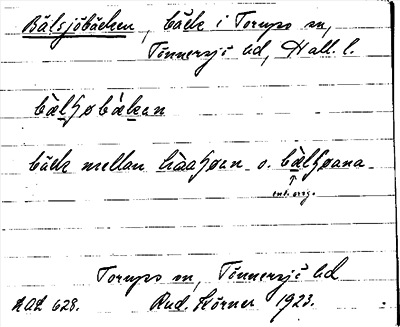 Bälsjöbäcken, bäck i Torups sn,
Tönnersjö hd, Hall. l.
bälʃobäkan
bäck mellan lìaʃøan o. bälʃøana
enl. orig.
Torups sn, Tönnersjö hd
HAL 628. Rud. Körner 1923.